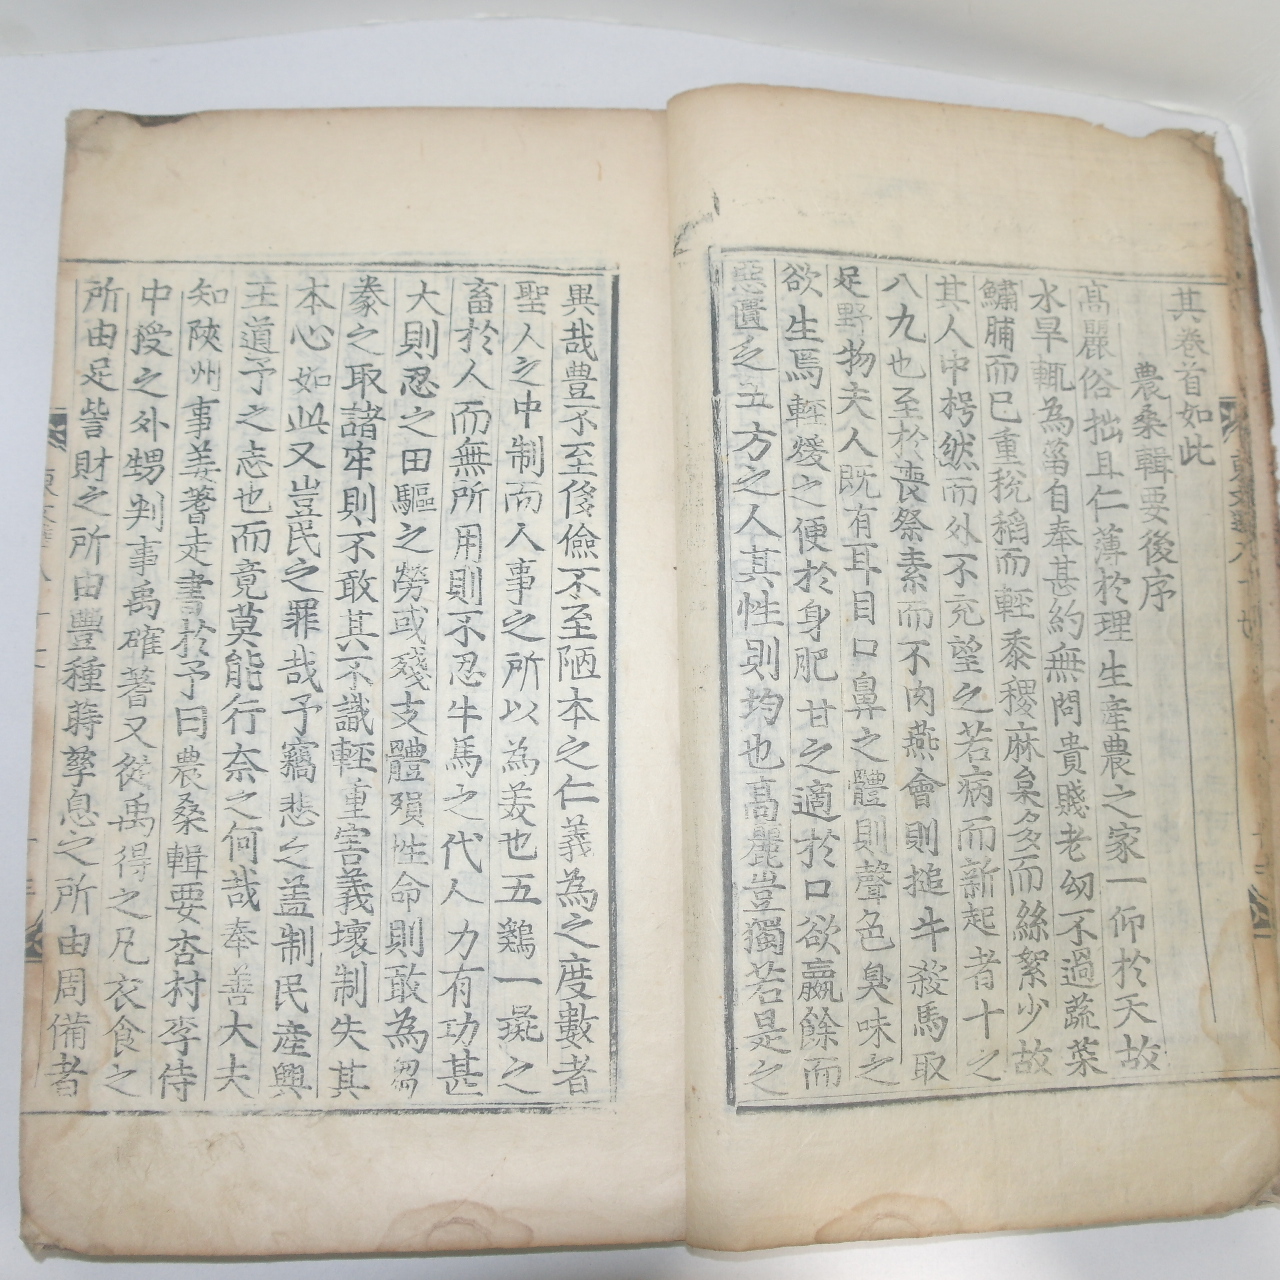 其卷首如此
農桑輯要後序
高麗俗拙且仁薄於理生産農之家一仰於天故
水旱輒為菑自奉甚約無問貴賤老幼不過蔬菜
鱐脯而已重秔稻而輕黍稷麻枲多而絲絮少故
其人中枵然而外不充望之若病而新起者十之
八九也至於喪祭素而不肉燕會則搥牛殺馬取
足野物夫人既有耳目口鼻之體則聲色臭味之
欲生焉輕煖之便於身肥甘之適於口欲贏餘而
惡匱乏五方之人其性則均也高麗豈獨若是之
異哉豊不至侈儉不至陋本之仁義為之度數者
聖人之中制而人事之所以為美也五雞一彘之
畜於人而無所用則不忍牛馬之代人力有功甚
大則忍之田驅之勞或殘支體殞性命則敢為芻
豢之取諸牢則不敢其不識輕重害義壞制失其
本心如此又豈民之罪哉予竊悲之盖制民産興
王道予之志也而竟莫能行奈之何哉奉善大夫
知陜州事姜蓍走書於予曰農桑輯要杏村李侍
中授之外甥判事禹確蓍又從禹得之凡衣食之
所由足貲財之所由豐種蒔孳息之所由周備者